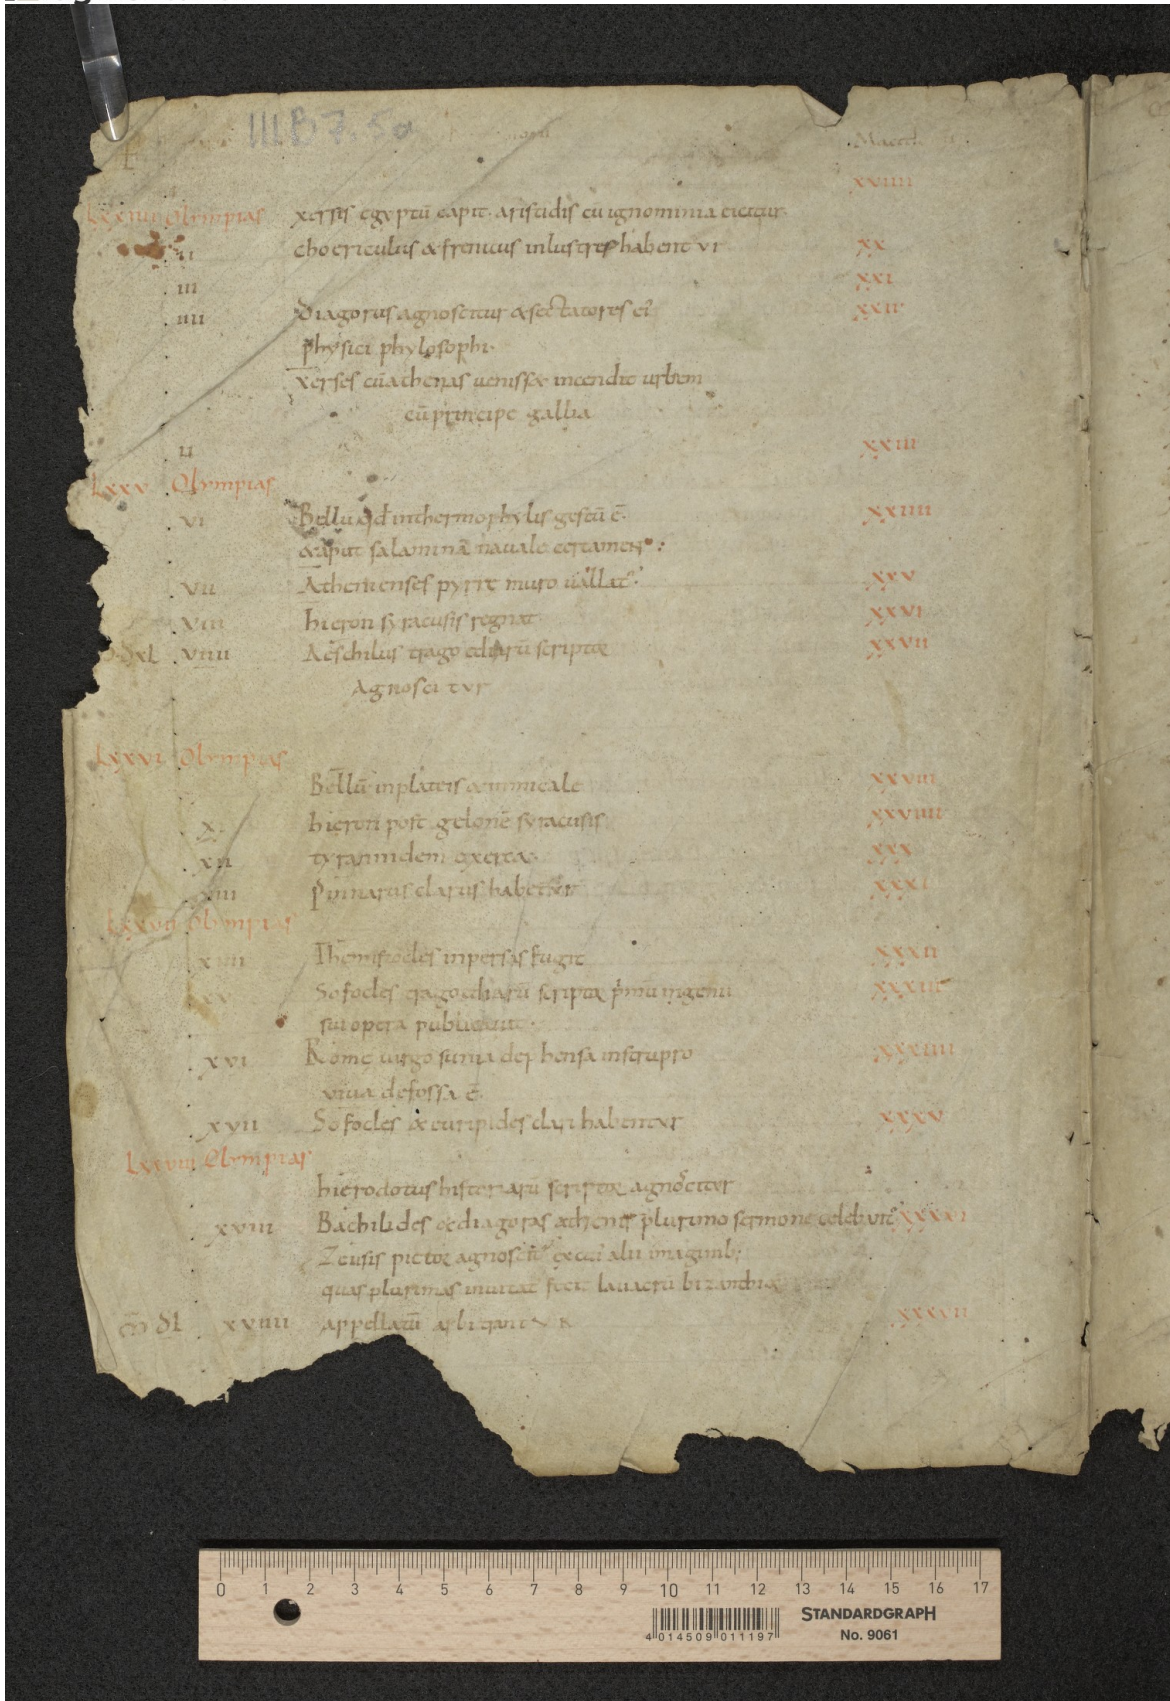 III B 7. 5a
xviiii
Lxxiiii Olympias xersis egyptū capit. aristidis cū ignominia eicitur.
ii choericulus & frenicus inlustres habent vr xx
iii xxi
iiii diagorus agnoscitur & sectatores ei' xxii
physici phylosophi.
xerses cū athenas uenisset incendit urbem
cū principe gallia
u xxiii
Lxxv Olympias
vi Bellū qđ in thermophylis gestū ē. xxiiii
& aput salaminā nauale certamen
vii Athenienses pyrre muro uallat' xxv
viii hieron syracusis regnat xxvi
δxl viiii Aeschilus tragoediarū scriptor xxvii
Agnoscitvr
Lxxvi Olympias
Bellū in plateis & in micale xxviii
x hieron post gelonē syracusis xxviiii
xii tyrannidem exercet xxx
xiii pinnarus clarus habetur xxxi
Lxxvii Olympias
xiiii Themistocles in persas fugit xxxii
xv Sofocles tragoediarū scriptor primū ingenii xxxiii
sui opera publicauit.
xvi Rome uirgo sunia dephensa in scrupro xxxiiii
viua defossa ē
xvii Sofocles & euripides clari habentvr xxxv
Lxxviii Olympias
hierodotus historiarū scriptor agnoscitvr
xviii Bachilides & diagoras athenis plurimo sermone celebrant' xxxvi
Zeusis pictor agnoscit' cuius imaginib;
quas plurimas lauacrū bizanthio
δl xviiii appellatū arbitrantvr xxxvii
0 1 2 3 4 5 6 7 8 9 10 11 12 13 14 15 16 17
4 014509 011197
STANDARDGRAPH
No. 9061